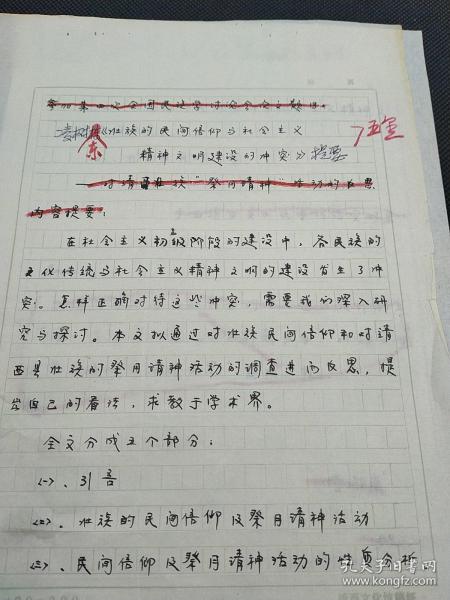 参加第四次全国民族学讨论会论文题目:
凌树东《壮族的民间信仰与社会主义
精神文明建设的冲突》提要
——对靖西壮族“祭月请神”活动的反思
内容提要:
在社会主义初级阶段的建设中,各民族的
文化传统与社会主义精神文明的建设发生了冲
突。怎样正确对待这些冲突,需要我们深入研
究与探讨。本文拟通过对壮族民间信仰和对靖
西县壮族的祭月请神活动的调查进而反思,提
出自己的看法,求教于学术界。
全文分成五个部分:
㈠、引言
㈡、壮族的民间信仰及祭月请神活动
㈢、民间信仰及祭月请神活动的性质分析
孔夫子旧书网